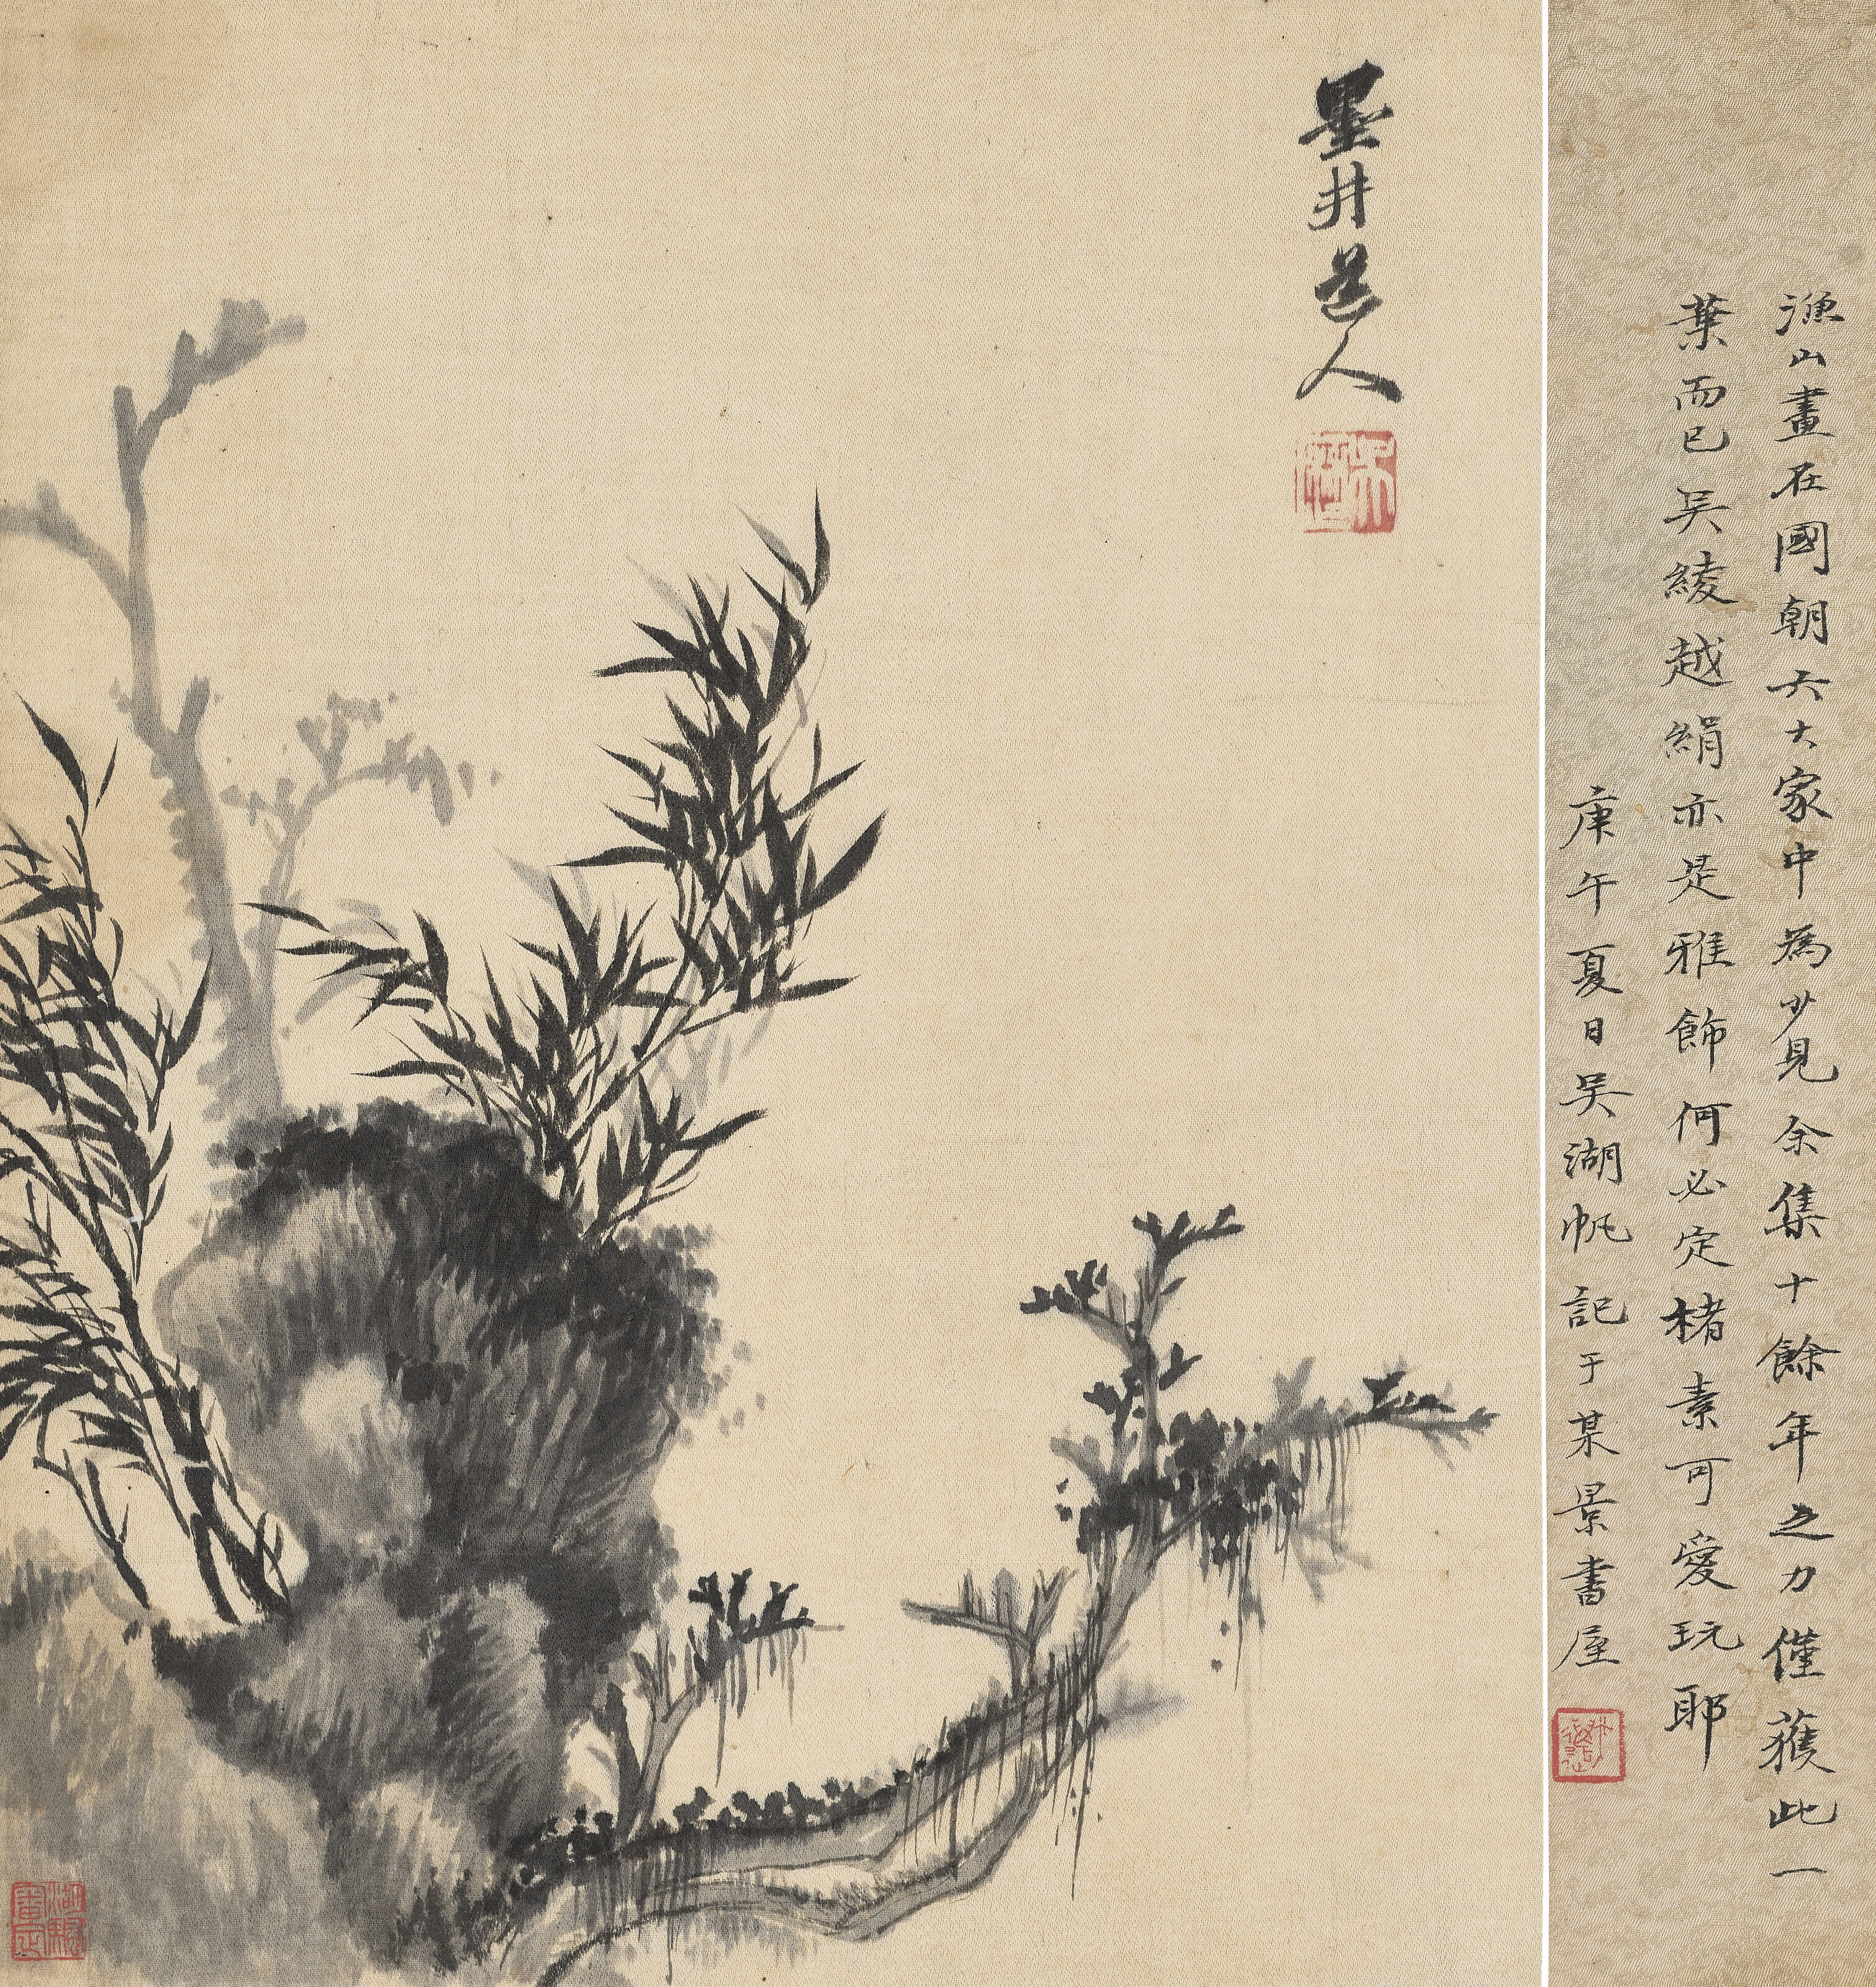 漁山畫在國朝六大家中為少見余集十餘年之力僅獲此一
葉而已吳綾越絹亦是雅飾何必定楮素可愛玩耶
庚午夏日吳湖帆記于某景書屋
墨井道人
吳歷
湖颿畫定